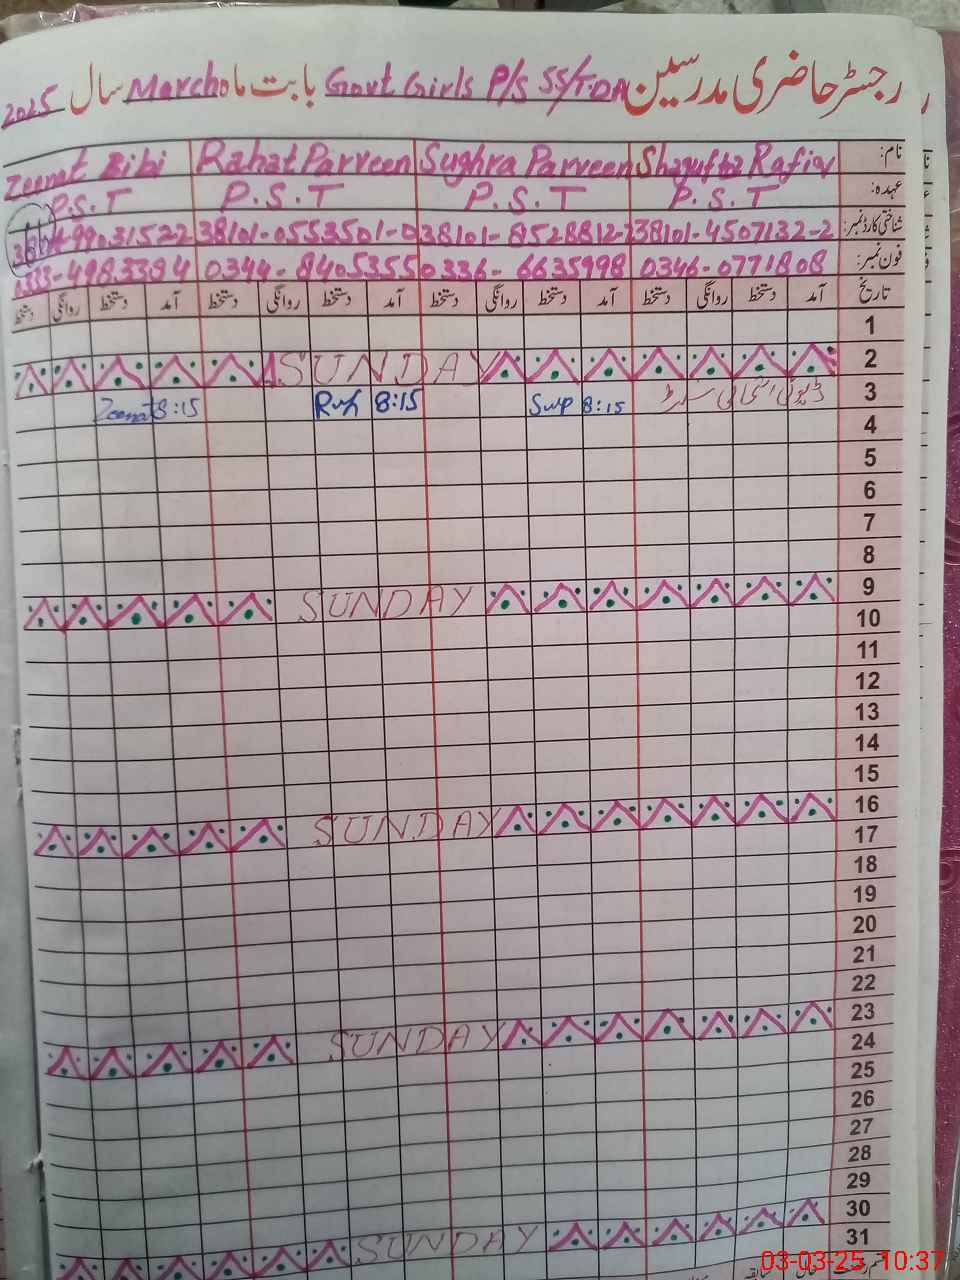 رجسٹر حاضری مدرسین Govt Girls P/S 55/TDA بابت ماہ March سال 2025
نام: Shagufta Rafiq Sughra Parveen Rahat Parveen Zeenat Bibi
عہدہ: P.S.T P.S.T P.S.T P.S.T
شناختی کارڈ نمبر: 38101-4507132-2 38101-8528812- 38101-0553501-0
فون نمبر: 0346-0771808 0336-6635998 0344-8405355 0333-4983384
تاریخ آمد دستخط روانگی دستخط آمد دستخط روانگی دستخط آمد دستخط روانگی دستخط آمد دستخط روانگی دستخط
1
2 SUNDAY
3 ڈیوٹی 8:15 8:15 Zeenat 8:15
4
5
6
7
8
9 SUNDAY
10
11
12
13
14
15
16 SUNDAY
17
18
19
20
21
22
23 SUNDAY
24
25
26
27
28
29
30 SUNDAY
31
سابقہ
03-03-25 10:37